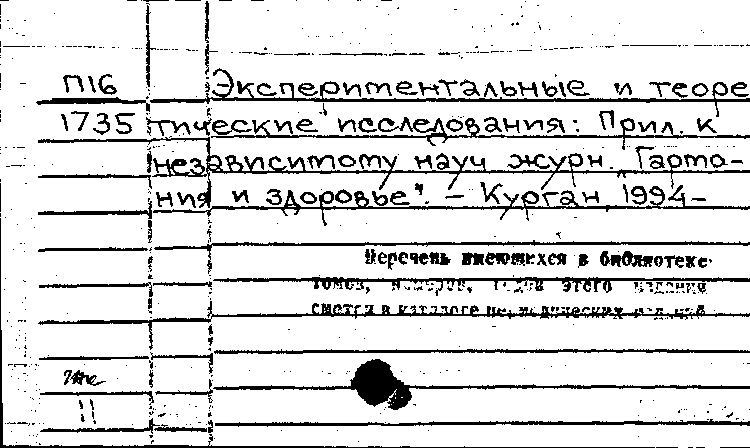 П16 Экспериментальные и теоре
1735 тические исследования: Прил. к
независимому науч журн. "Гармо-
ния и здоровье". – Курган, 1994–
Перечень имеющихся в библиотеке
томов, номеров, годов этого издания
смотри в каталоге периодических изданий
11